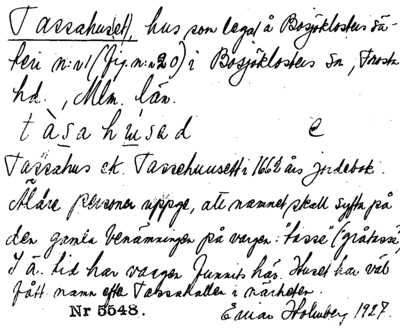 Tassahuset, hus som legat å Bosjöklosters sä-
teri n:r 1 (fig. n:r 20) i Bosjöklosters sn, Frosta
hd., Mlm. län.
tàsahu̇sad e
Tassahus ek. Tassehuusett i 1662 års jordebok.
Äldre personer uppge, att namnet skall syfta på
den gamla benämningen på vargen: "tasse" (gråtasse)
I ä. tid har vargen funnits här. Huset har väl
fått namn efter Tassakallen i närheten.
Nr 5548. Einar Holmberg 1927.